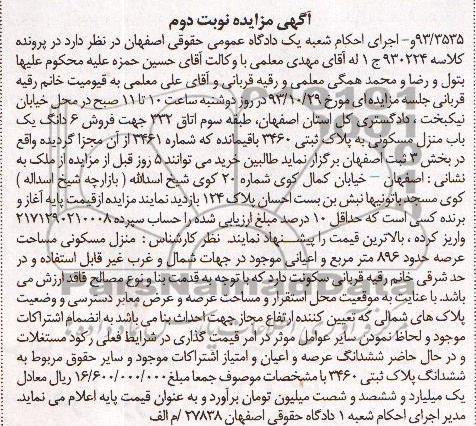 آگهی مزایده نوبت دوم
۹۳/۳۵۳۵و- اجرای احکام شعبه یک دادگاه عمومی حقوقی اصفهان در نظر دارد در پرونده
کلاسه ۹۳۰۲۲۴ ج ۱ له آقای مهدی معلمی با وکالت آقای حسین حمزه علیه محکوم علیها
بتول و رضا و محمد همگی معلمی و رقیه قربانی و آقای علی معلمی به قیومیت خانم رقیه
قربانی جلسه مزایده ای مورخ ۹۳/۱۰/۲۹ در روز دوشنبه ساعت ۱۰ تا ۱۱ صبح در محل خیابان
نیکبخت ، دادگستری کل استان اصفهان، طبقه سوم اتاق ۳۳۲ جهت فروش ۶ دانگ یک
باب منزل مسکونی به پلاک ثبتی ۳۴۶۰ باقیمانده که شماره ۳۴۶۱ از آن مجزا گردیده واقع
در بخش ۳ ثبت اصفهان برگزار نماید طالبین خرید می توانند ۵ روز قبل از مزایده از ملک به
نشانی : اصفهان – خیابان کمال کوی شماره ۲۰ کوی شیخ اسدالله ( بازارچه شیخ اسداله )
کوی مسجد پاتونیها نبش بن بست احسان پلاک ۱۲۴ بازدید نمایند مزایده ازقیمت پایه آغاز و
برنده کسی است که حداقل ۱۰ درصد مبلغ ارزیابی شده را حساب سپرده ۲۱۷۱۲۹۰۲۱۰۰۰۸
واریز کرده ، بالاترین قیمت را پیشنهاد نمایند. نظر کارشناس : منزل مسکونی مساحت
عرصه حدود ۸۹۶ متر مربع و اعیانی موجود در جهات شمال و غرب غیر قابل استفاده و در
حد شرقی خانم رقیه قربانی سکونت دارد که با توجه به قدمت بنا و نوع مصالح فاقد ارزش می
باشد. با عنایت به موقعیت محل استقرار و مساحت عرصه و عرض معابر دسترسی و وضعیت
پلاک های شمالی که تعیین کننده ارتفاع مجاز جهت احداث بنا می باشد به انضمام اشتراکات
موجود و لحاظ نمودن سایر عوامل موثر در امر قیمت گذاری در شرایط فعلی رکود مستغلات
و در حال حاضر ششدانگ عرصه و اعیان و امتیاز اشتراکات موجود و سایر حقوق مربوط به
ششدانگ پلاک ثبتی ۳۴۶۰ با مشخصات موصوف جمعا مبلغ ۱۶/۶۰۰/۰۰۰/۰۰۰ ریال معادل
یک میلیارد و ششصد و شصت میلیون تومان برآورد و به عنوان قیمت پایه اعلام می نماید.
مدیر اجرای احکام شعبه ۱ دادگاه حقوقی اصفهان ۲۷۸۳۸ /م الف